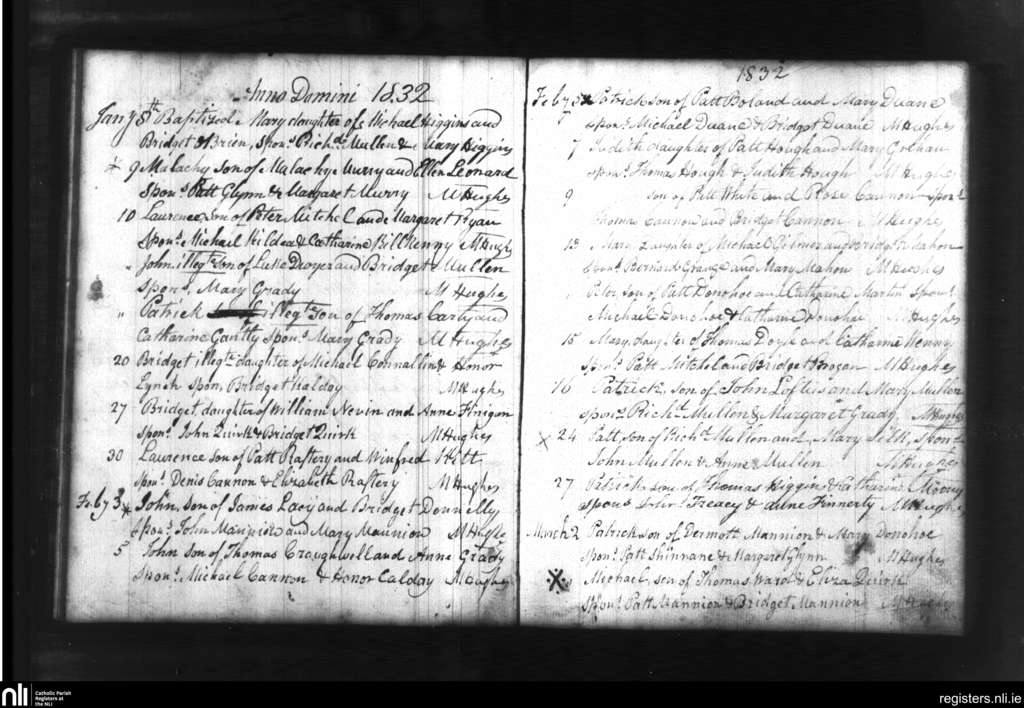 Anno Domini 1832
Jany 8th Baptized Mary daughter of Michael Higgins and
Bridget O'Brien, Sponrs Richd Mullen & Mary Higgins
9 Malachy son of Malachy Murry and Ellen Leonard
Sponrs Patt Glynn & Margaret Murry MHughes
10 Laurence, son of Peter Mitchel and Margaret Ryan
Sponrs Michael Kildea & Catharine Bilkenny MHughes
" John illegte son of Luke Dwyer and Bridget Mullen
Sponr Mary Grady M Hughes
" Patrick illegte Son of Thomas Carty and
Catharine Gantly Sponr Mary Grady M Hughes
20 Bridget illegte daughter of Michael Connallin & Honor
Lynch Sponr Bridget MHughes
27 Bridget, daughter of William Nevin and Anne Finigan
Sponrs John Quirk & Bridget Quirk MHughes
30 Laurence son of Patt Raftery and Winifred Witt
Sponrs Denis Cannon & Elizabeth Raftery MHughes
Feby 3 John, son of James Lacy and Bridget Donnelly
Sponrs John Mannion and Mary Mannion MHughes
5 John Son of Thomas Craughwell and Anne Grady
Sponrs Michael Cannon & Honor Calday MHughes
1832
Feby 5 Patrick son of Patt Boland and Mary Duane
sponrs Michael Duane & Bridget Duane MHughes
7 Judith daughter of Patt Hough and Mary
sponrs Thomas Hough & Judith Hough M Hughes
9 son of Patt White and Rose Cannon Sponrs
Thomas Cannon and Bridget Cannon MHughes
13 Mary daughter of Michael and Bridget Mahon
Sponrs Bernard and Mary Mahon MHughes
" Peter, son of Patt Donohoe and Catharine Martin Sponrs
Michael Donohoe & Catharine Donohoe MHughes
15 Mary, daughter of Thomas Doyle and Catharine Kenny
Sponrs Patt Mitchel and Bridget Brogan MHughes
16 Patrick, son of John Loftus and Mary Mullen
sponrs Richd Mullen & Margaret Grady MHughes
24 Patt, son of Richd Mullen and Mary Silk, Sponrs
John Mullen & Anne Mullen MHughes
27 Patrick son of Thomas Higgin & Catharine Moony
sponrs Treacy & Anne Finnerty MHughes
March 2 Patrick son of Dermott Mannion & Mary Donohoe
Sponrs Patt Shinnane & Margaret Glynn MHughes
Michael, son of Thomas Ward & Eliza Quirk
Sponrs Patt Mannion & Bridget Mannion MHughes
nli
Catholic Parish
Registers at
the NLI
registers.nli.ie